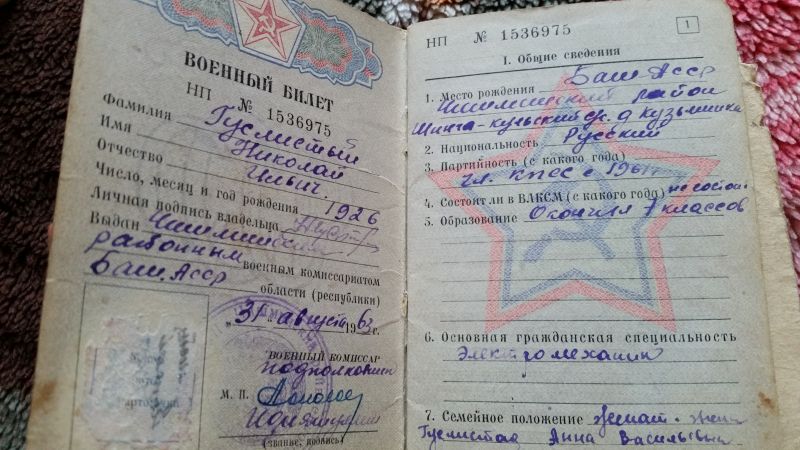 ВОЕННЫЙ БИЛЕТ
НП № 1536975
Фамилия Гуслистый
Имя Николай
Отчество Ильич.
Число, месяц и год рождения 1926
Личная подпись владельца
Выдан Чишминским
районным военным комиссариатом
Баш. Асср области (республики)
„31" августа 1963 г.
ВОЕННЫЙ КОМИССАР
подполковник
М. П.
(звание, подпись)
НП № 1536975
1
I. Общие сведения
1. Место рождения Баш. Асср
Чишминский район
д. Кузьминка
2. Национальность Русский
3. Партийность (с какого года)
чл. КПСС с
4. Состоит ли в ВЛКСМ (с какого года) не состоит
5. Образование Окончил 7 классов
6. Основная гражданская специальность
Электромеханик
7. Семейное положение женат - жена
Гуслистая Анна Васильевна